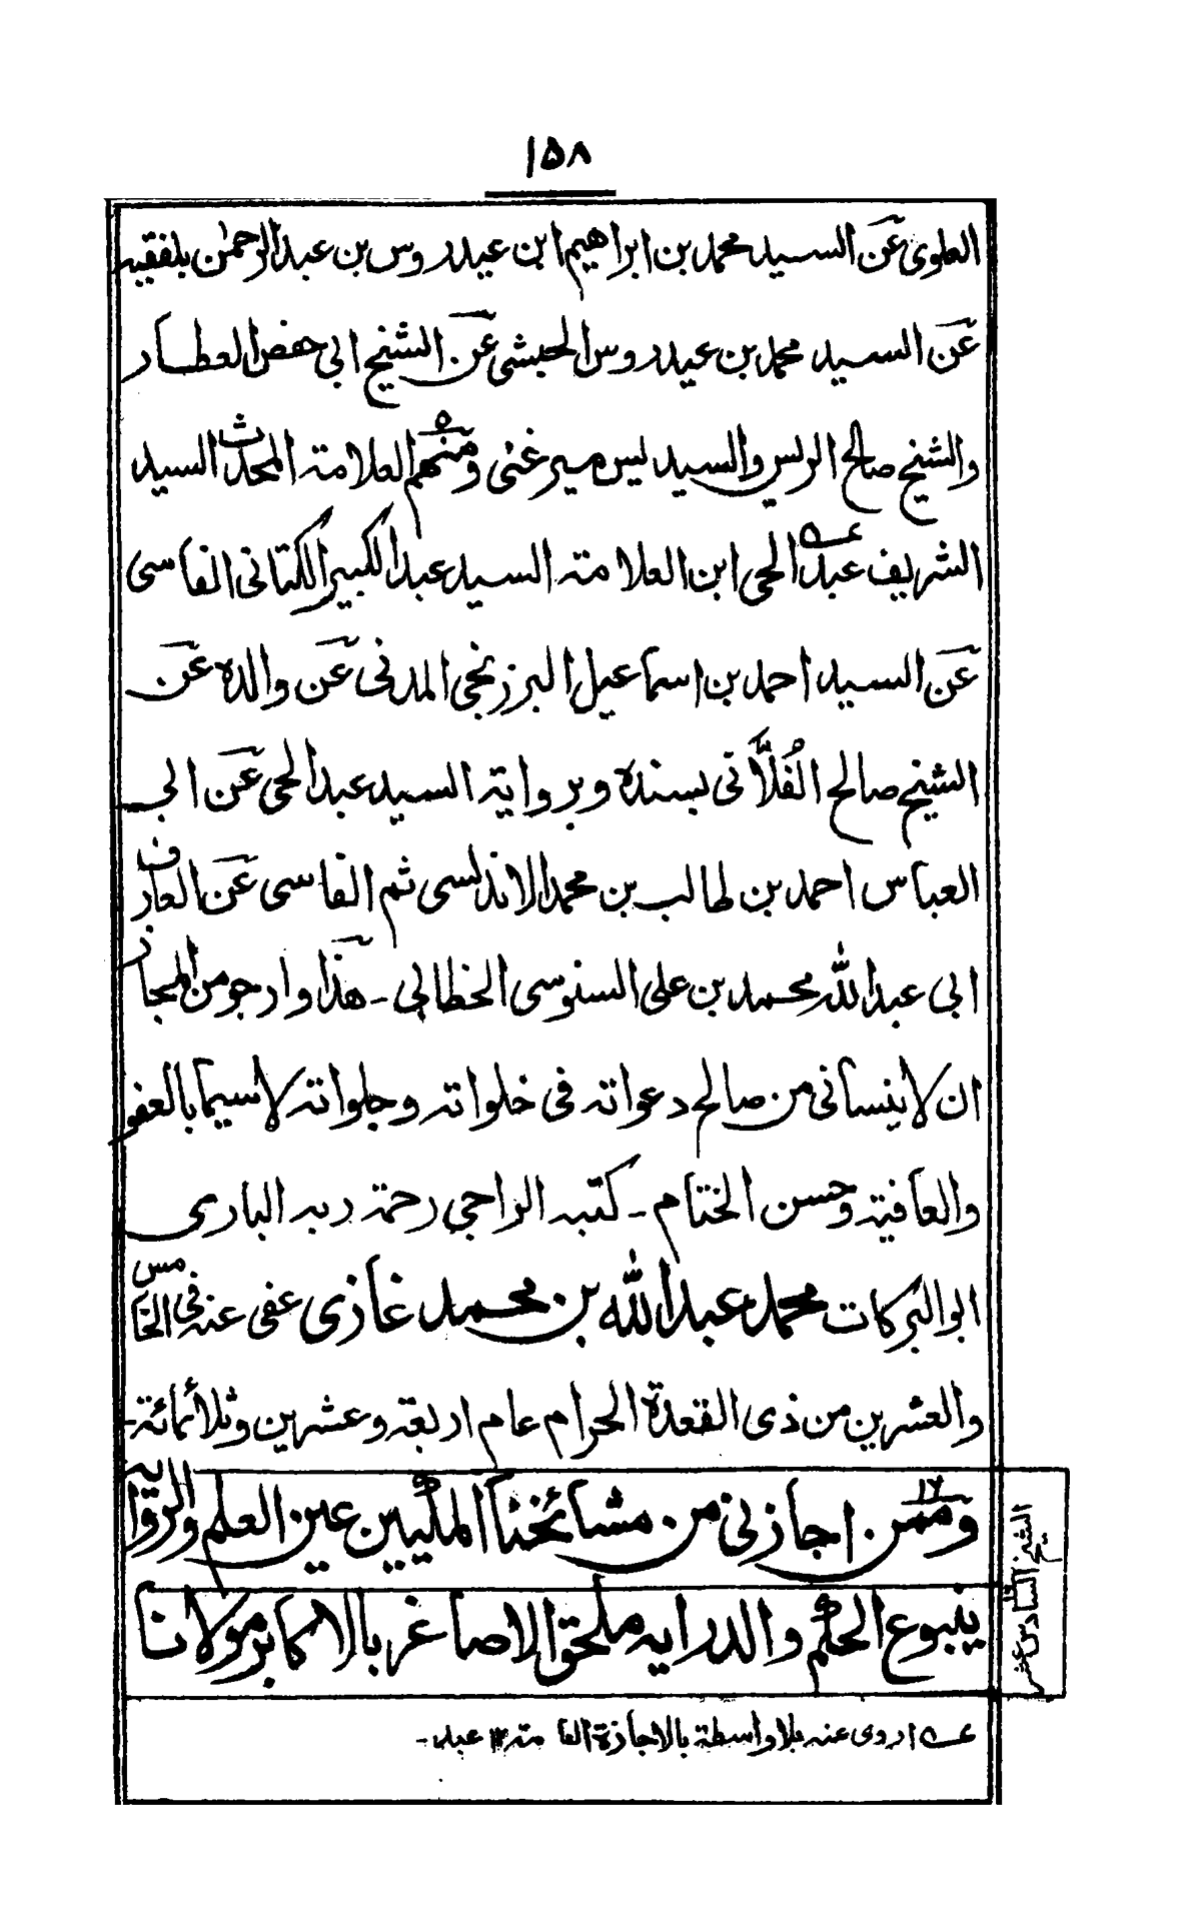 ١٥٨
العلوى عن السيد محمد بن ابراهيم ابن عيدروس بن عبدالرحمٰن بلفقيه
عن السيد محمد بن عيدروس الحبشى عن الشيخ ابى حفص العطار
والشيخ صالح الريس والسيد يس ميرغنى ومنهم العلامة المحدث السيد
الشريف عبد الحى ابن العلامة السيد عبد الكبير الكتانى الفاسى
عن السيد احمد بن اسماعيل البرزنجى المدنى عن والده عن
الشيخ صالح الفُلاَّنى بسنده وبرواية السيد عبد الحى عن ابى
العباس احمد بن طالب بن محمد الاندلسى ثم الفاسى عن العارف
ابى عبدالله محمد بن على السنوسى الخطابى ـ هذا وارجو من المجاز
ان لا ينسانى من صالح دعواته فى خلواته وجلواته لاسيما بالعفو
والعافية وحسن الختام ـ كتبه الراجى رحمة ربه البارى
ابو البركات محمد عبد الله بن محمد غازى عفى عنه فى الخامس
والعشرين من ذى القعدة الحرام عام اربعة وعشرين وثلاثمائة ـ
١٦ وممن اجازنى من مشائخنا المكيين عين العلم والرواية
ينبوع الحكم والدرايه ملحق الاصاغر بالاكابر مولانا
الشيخ السادس عشر
عه اروى عنه بلا واسطة بالاجازة العامة ١٢ عبد ـ